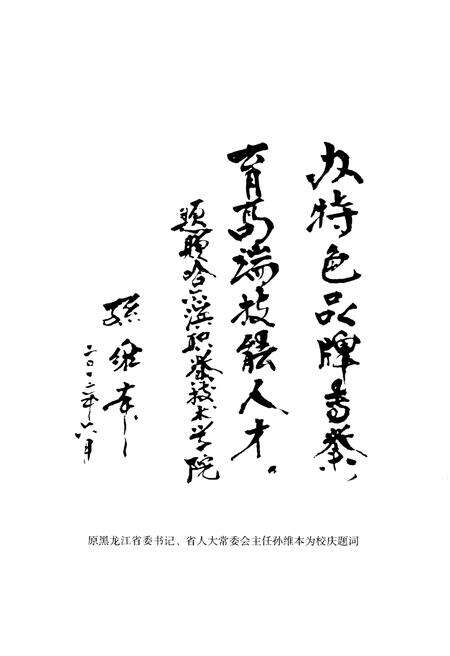 办特色品牌专業
育高端技能人才。
题赠哈尔滨职業技术学院
孙维本
二〇一二年六月
原黑龙江省委书记、省人大常委会主任孙维本为校庆题词